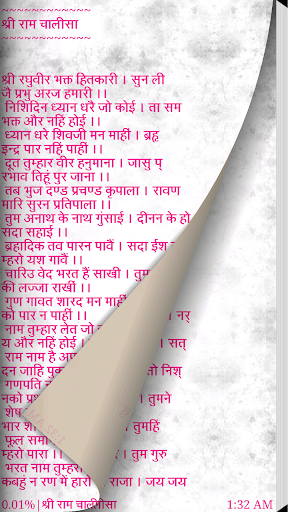 ~~~~~~~~~~~~
श्री राम चालीसा
~~~~~~~~~~~~
श्री रघुवीर भक्त हितकारी । सुन ली
जै प्रभु अरज हमारी ।।
निशिदिन ध्यान धरै जो कोई । ता सम
भक्त और नहिं होई ।।
ध्यान धरे शिवजी मन माहीं । ब्रह्
इन्द्र पार नहिं पाहीं ।।
दूत तुम्हार वीर हनुमाना । जासु प्
रभाव तिहूं पुर जाना ।।
तब भुज दण्ड प्रचण्ड कृपाला । रावण
मारि सुरन प्रतिपाला ।।
तुम अनाथ के नाथ गुंसाई । दीनन के हो
सदा सहाई ।।
ब्रहादिक तव पारन पावैं । सदा ईश
म्हरो यश गावैं ।।
चारिउ वेद भरत हैं साखी ।
की लज्जा राखीं ।।
गुण गावत शारद मन माहीं
को पार न पाहीं ।। नर्
नाम तुम्हार लेत जो
य और नहिं होई । सत्
राम नाम है
दन जाहि निश्
गणपति
नको तुमने
शेष
भार तुमहिं
फूल
म्हरो पारा । तुम गुरु
भरत नाम
कबहुं न रण में हारो राजा । जय जय
0.01%|श्री राम चालीसा 1:32 AM